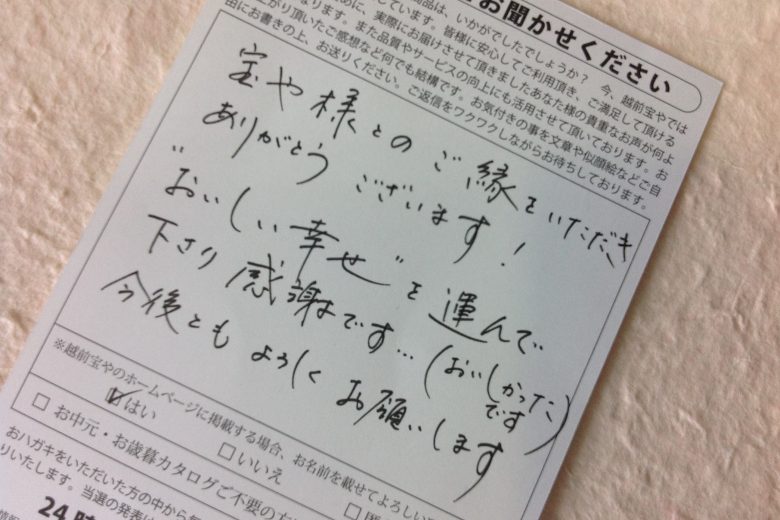 お聞かせください
商品は、いかがでしたでしょうか? 今、越前宝やでは
しています。皆様に安心してご利用頂き、ご満足して頂ける
ために、実際にお届けさせて頂きましたあなた様の貴重なお声が何よ
なります。また品質やサービスの向上にも活用させて頂いております。お
上がり頂いたご感想など何でも結構です。お気付きの事を文章や似顔絵などご自
由にお書きの上、お送りください。ご返信をワクワクしながらお待ちしております。
宝や様とのご縁をいただき
ありがとうございます!
"おいしい幸せ"を運んで
下さり感謝です…(おいしかった
です)
今後ともよろしくお願いします
※越前宝やのホームページに掲載する場合、お名前を載せてよろしい
☑はい
□いいえ
□お中元・お歳暮カタログご不要の方
□
おハガキをいただいた方の中から毎
りいたします。当選の発表は
24時